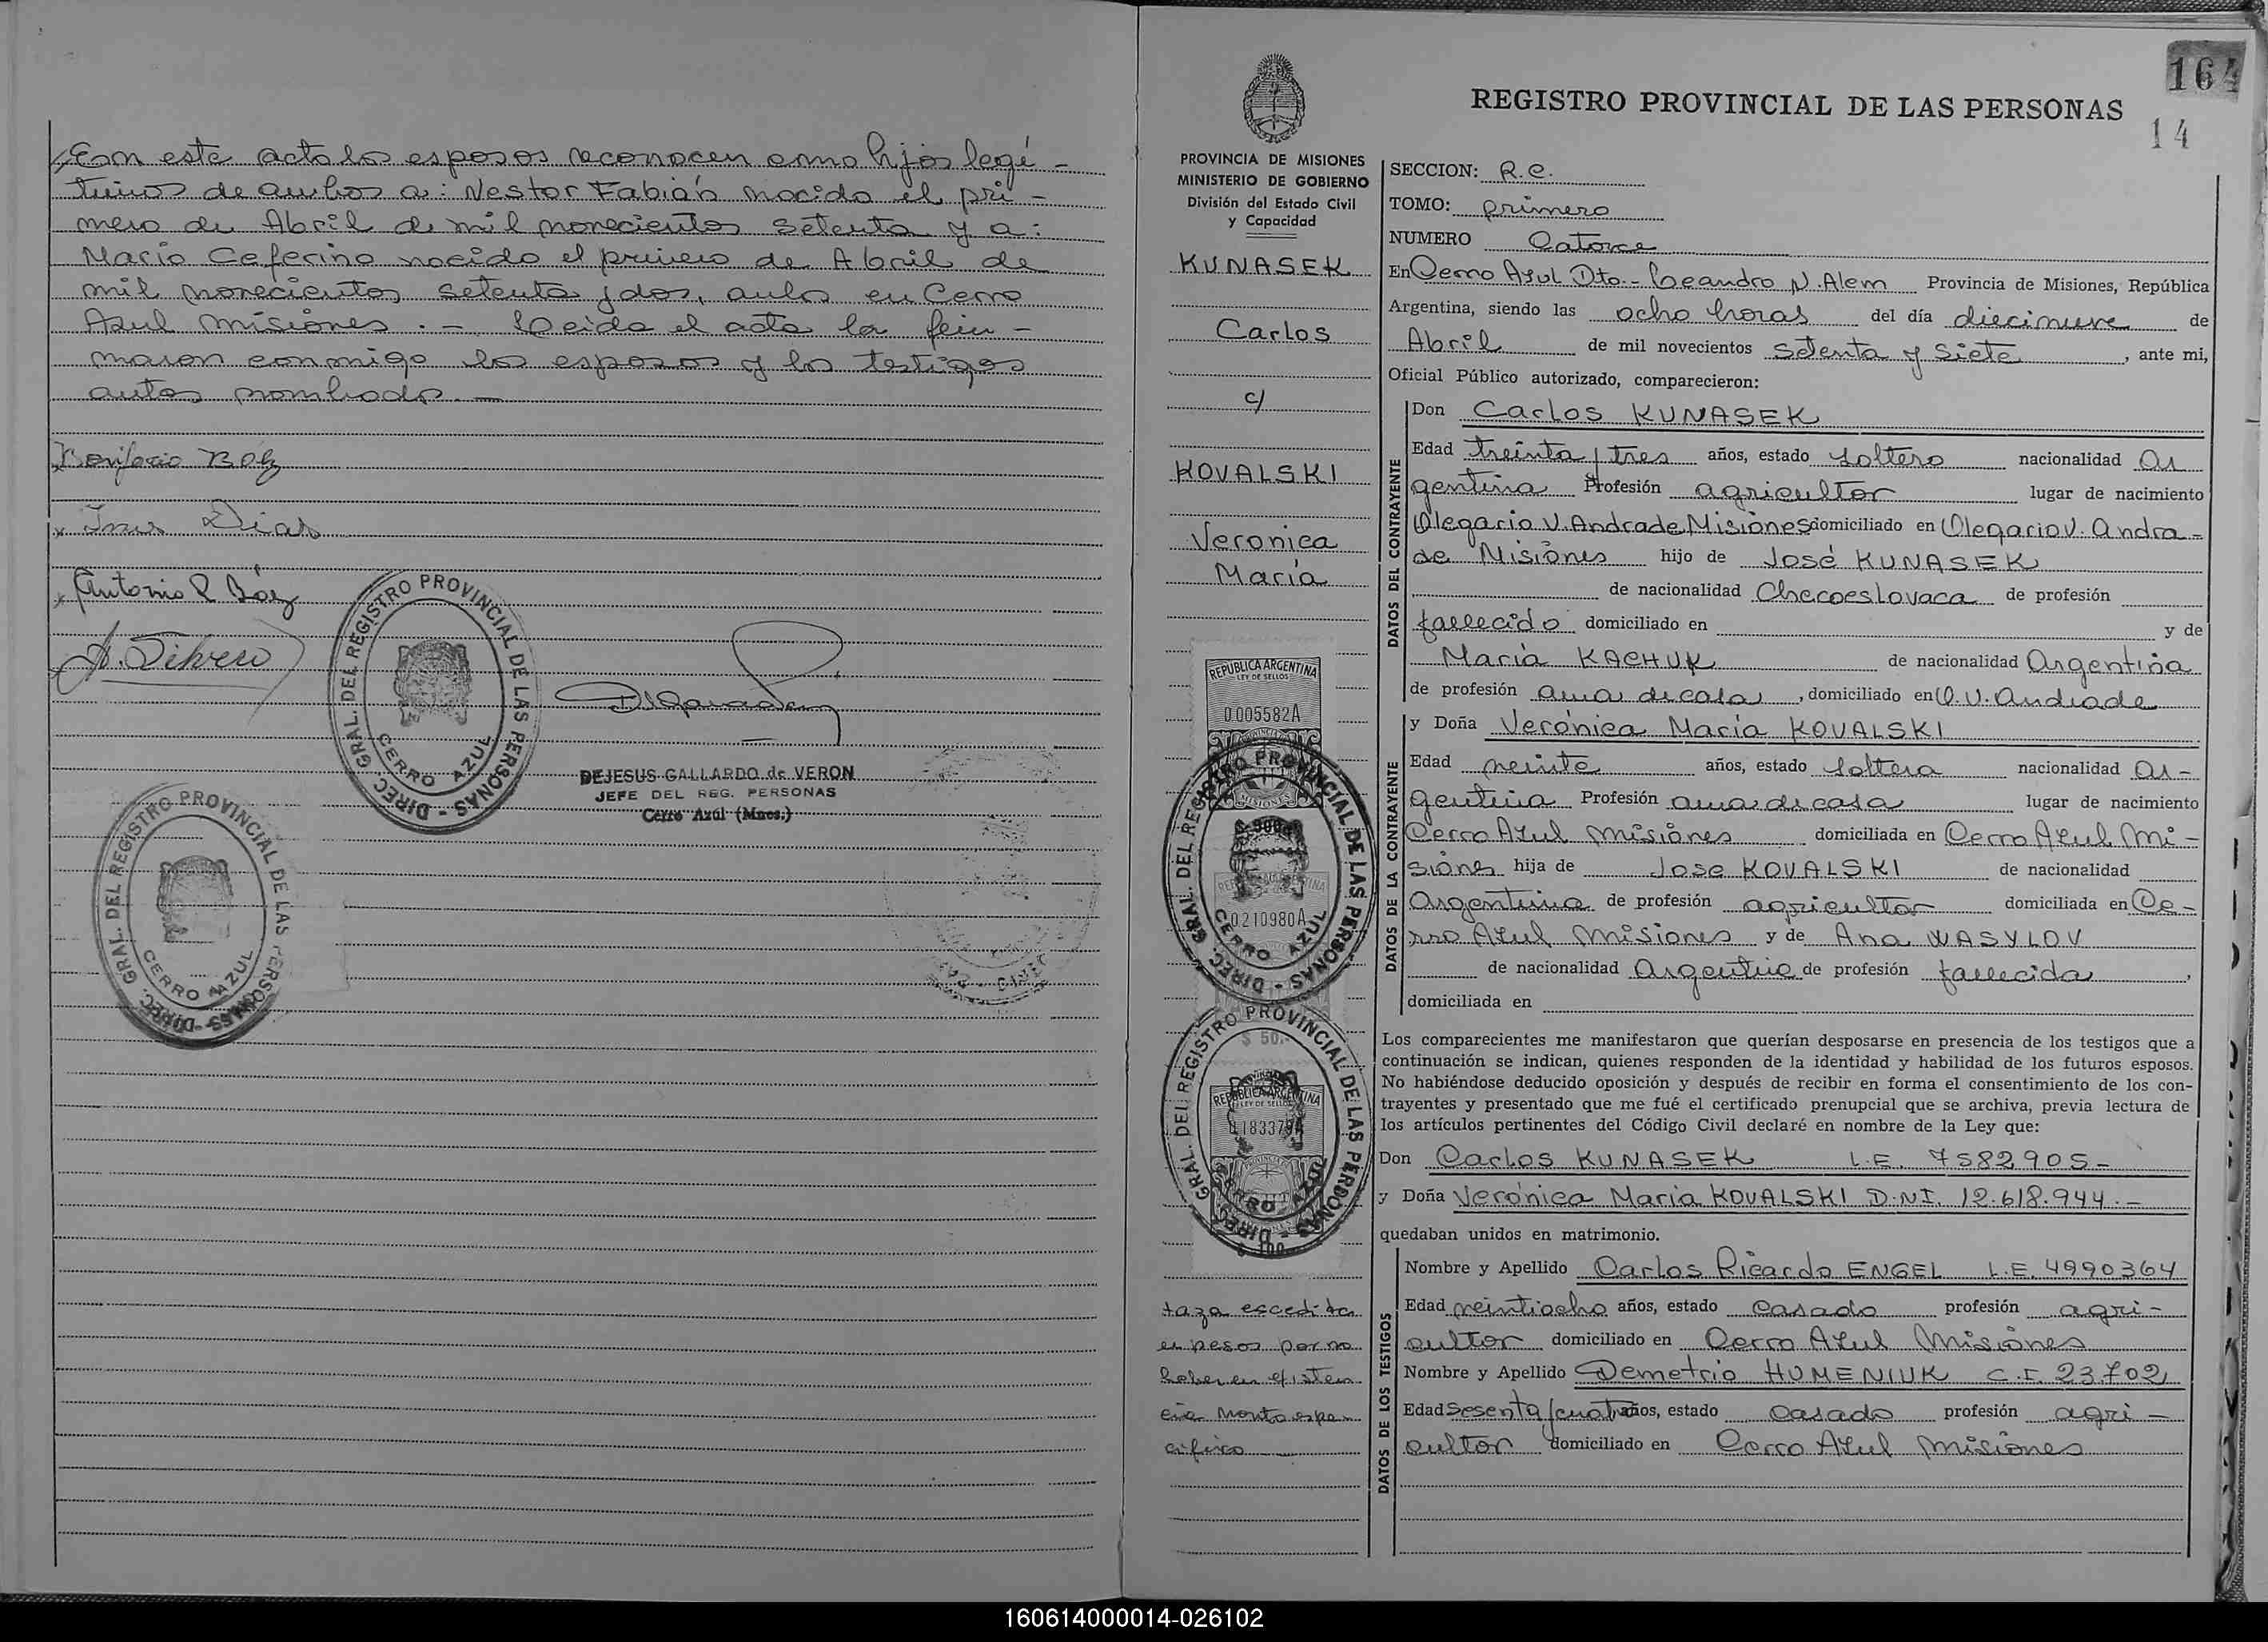 En este acto los esposos reconocen como hijos legí-
timos de ambos a: Nestor Fabián nacido el pri-
mero de Abril de mil novecientos setenta y a:
Mario Ceferino nacido el primero de Abril de
mil novecientos setenta y dos, ambos en Cerro
Azul Misiones. - Leida el acta la fir-
maron conmigo los esposos y los testigos
antes nombrados. —
Bonifacio
Antonio R
DIREC. GRAL. DEL REGISTRO PROVINCIAL DE LAS PERSONAS
CERRO AZUL
DEJESUS GALLARDO de VERON
JEFE DEL REG. PERSONAS
Cerro Azul (Mnes.)
DIREC. GRAL. DEL REGISTRO PROVINCIAL DE LAS PERSONAS
CERRO AZUL
164
REGISTRO PROVINCIAL DE LAS PERSONAS
14
PROVINCIA DE MISIONES
MINISTERIO DE GOBIERNO
División del Estado Civil
y Capacidad
KUNASEK
Carlos
c/
KOVALSKI
Veronica
María
REPUBLICA ARGENTINA
LEY DE SELLOS
0005582A
DIREC. GRAL. DEL REGISTRO PROVINCIAL DE LAS PERSONAS
0210980A
CERRO AZUL
$ 50.-
DIREC. GRAL. DEL REGISTRO PROVINCIAL DE LAS PERSONAS
REPUBLICA ARGENTINA
LEY DE SELLOS
taza escedita
en pesos por no
haber en existen
cia monto espe-
cifico
SECCION: R.C.
TOMO: primero
NUMERO Catorce
En Cerro Azul Dto.- Leandro N. Alem Provincia de Misiones, República
Argentina, siendo las ocho horas del día diecinueve de
Abril de mil novecientos setenta y siete, ante mi,
Oficial Público autorizado, comparecieron:
DATOS DEL CONTRAYENTE
Don Carlos KUNASEK
Edad treinta y tres años, estado soltero nacionalidad Ar
gentina Profesión agricultor lugar de nacimiento
Olegario V. Andrade Misiones domiciliado en Olegario V. Andra-
de Misiones hijo de José KUNASEK
de nacionalidad Checoeslovaca de profesión
fallecido domiciliado en y de
María KACHUK de nacionalidad Argentina
de profesión ama de casa, domiciliado en O. V. Andrade
DATOS DE LA CONTRAYENTE
y Doña Verónica María KOVALSKI
Edad veinte años, estado soltera nacionalidad Ar-
gentina Profesión ama de casa lugar de nacimiento
Cerro Azul Misiones domiciliada en Cerro Azul Mi-
siones hija de Jose KOVALSKI de nacionalidad
Argentina de profesión agricultor domiciliada en Ce-
rro Azul Misiones y de Ana WASYLOV
de nacionalidad Argentina de profesión fallecida,
domiciliada en
Los comparecientes me manifestaron que querían desposarse en presencia de los testigos que a
continuación se indican, quienes responden de la identidad y habilidad de los futuros esposos.
No habiéndose deducido oposición y después de recibir en forma el consentimiento de los con-
trayentes y presentado que me fué el certificado prenupcial que se archiva, previa lectura de
los artículos pertinentes del Código Civil declaré en nombre de la Ley que:
Don Carlos KUNASEK L.E. 7582905-
y Doña Verónica María KOVALSKI D.N.I. 12.618.944.-
quedaban unidos en matrimonio.
DATOS DE LOS TESTIGOS
Nombre y Apellido Carlos Ricardo ENGEL L.E. 4990364
Edad veintiocho años, estado casado profesión agri-
cultor domiciliado en Cerro Azul Misiones
Nombre y Apellido Demetrio HUMENIUK C.I. 23.702
Edad Sesenta y cuatro años, estado casado profesión agri-
cultor domiciliado en Cerro Azul Misiones
160614000014-026102